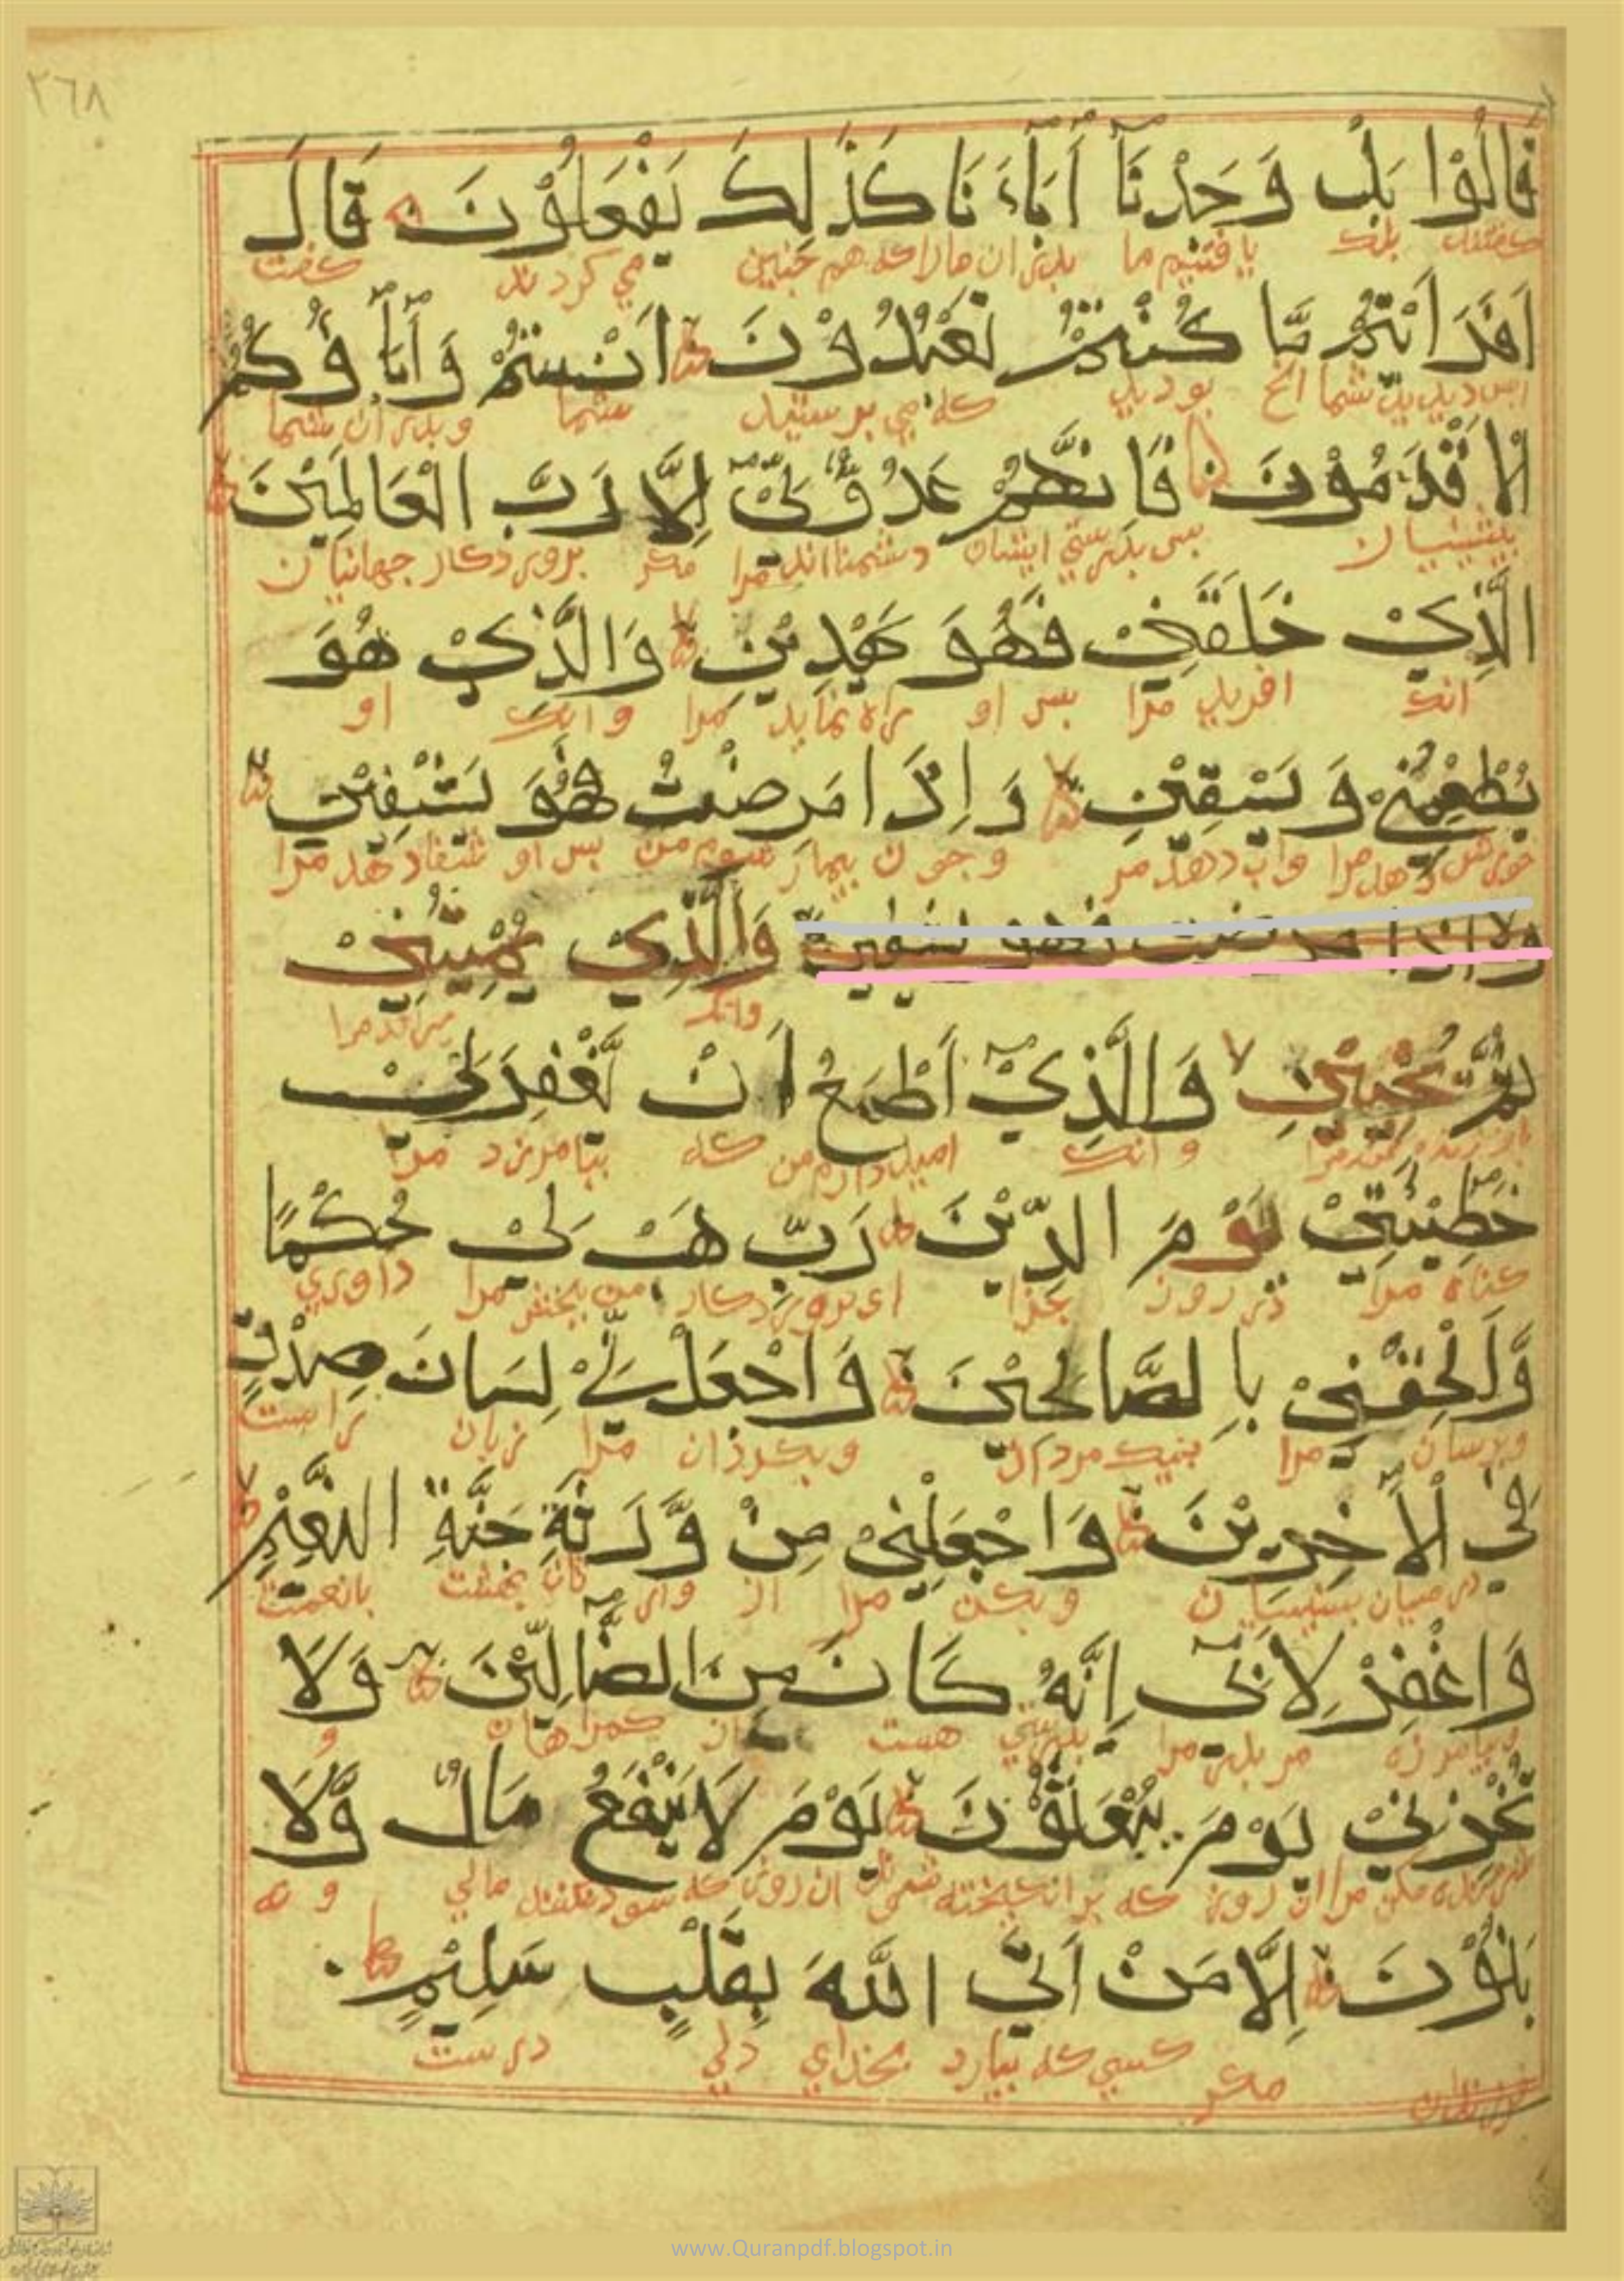 ٢٦٨
قَالُوْا بَلْ وَجَدْنَآ اٰبَاءَنَا كَذٰلِكَ يَفْعَلُوْنَ قَالَ
كفتند بلك يافتيم ما بدران مارا كه هم جنين مي كردند كفت
اَفَرَاَيْتُمْ مَّا كُنْتُمْ تَعْبُدُوْنَ اَنْتُمْ وَاٰبَاؤُكُمُ
شما انج بوديد كه مي برستيد شما و بدران شما
الْاَقْدَمُوْنَ فَاِنَّهُمْ عَدُوٌّ لِّيْ اِلَّا رَبَّ الْعَالَمِيْنَ
بيشينيان بس بدرستي ايشان دشمنانند مرا مكر بروردكار جهانيان
الَّذِيْ خَلَقَنِيْ فَهُوَ يَهْدِيْنِ وَالَّذِيْ هُوَ
انك افريد مرا بس او راه نمايد مرا وانك او
يُطْعِمُنِيْ وَيَسْقِيْنِ وَاِذَا مَرِضْتُ فَهُوَ يَشْفِيْنِ
مرا واب دهد مر وجون بيمار شوم من بس او شفا دهد مرا
وَاِذَا مرضت فهو يشفين وَالَّذِيْ يُمِيْتُنِيْ
وانك ميراند مرا
ثُمَّ يُحْيِيْنِ وَالَّذِيْٓ اَطْمَعُ اَنْ يَّغْفِرَ لِيْ
وانك اميد دارم من كه بيامرزد مرا
خَطِيْئَتِيْ يَوْمَ الدِّيْنَ رَبِّ هَبْ لِيْ حُكْمًا
كناه مرا در روز جزا اى بروردكار من ببخش مرا داوري
وَّاَلْحِقْنِيْ بِالصَّالِحِيْنَ وَاجْعَلْ لِّيْ لِسَانَ صِدْقٍ
وبرسان مرا بنيك مردان وبكردان مرا زبان راست
فِي الْاٰخِرِيْنَ وَاجْعَلْنِيْ مِنْ وَّرَثَةِ جَنَّةِ النَّعِيْمِ
در ميان بسينيان وبكن مرا از وارثان بهشت بانعمت
وَاغْفِرْ لِاَبِيْٓ اِنَّهٗ كَانَ مِنَ الضَّآلِّيْنَ وَلَا
وبيامرز مر بدر مرا بدرستي هست از كمراهان و
تُخْزِنِيْ يَوْمَ يُبْعَثُوْنَ يَوْمَ لَا يَنْفَعُ مَالٌ وَّلَا
مكن مرا ان روز كه برانكيخته شوند ان روز كه سود نكند مالي و نه
بَنُوْنَ اِلَّا مَنْ اَتَى اللّٰهَ بِقَلْبٍ سَلِيْمٍ
مكر كسي كه بيارد بخداي دلي درست
www.Quranpdf.blogspot.in